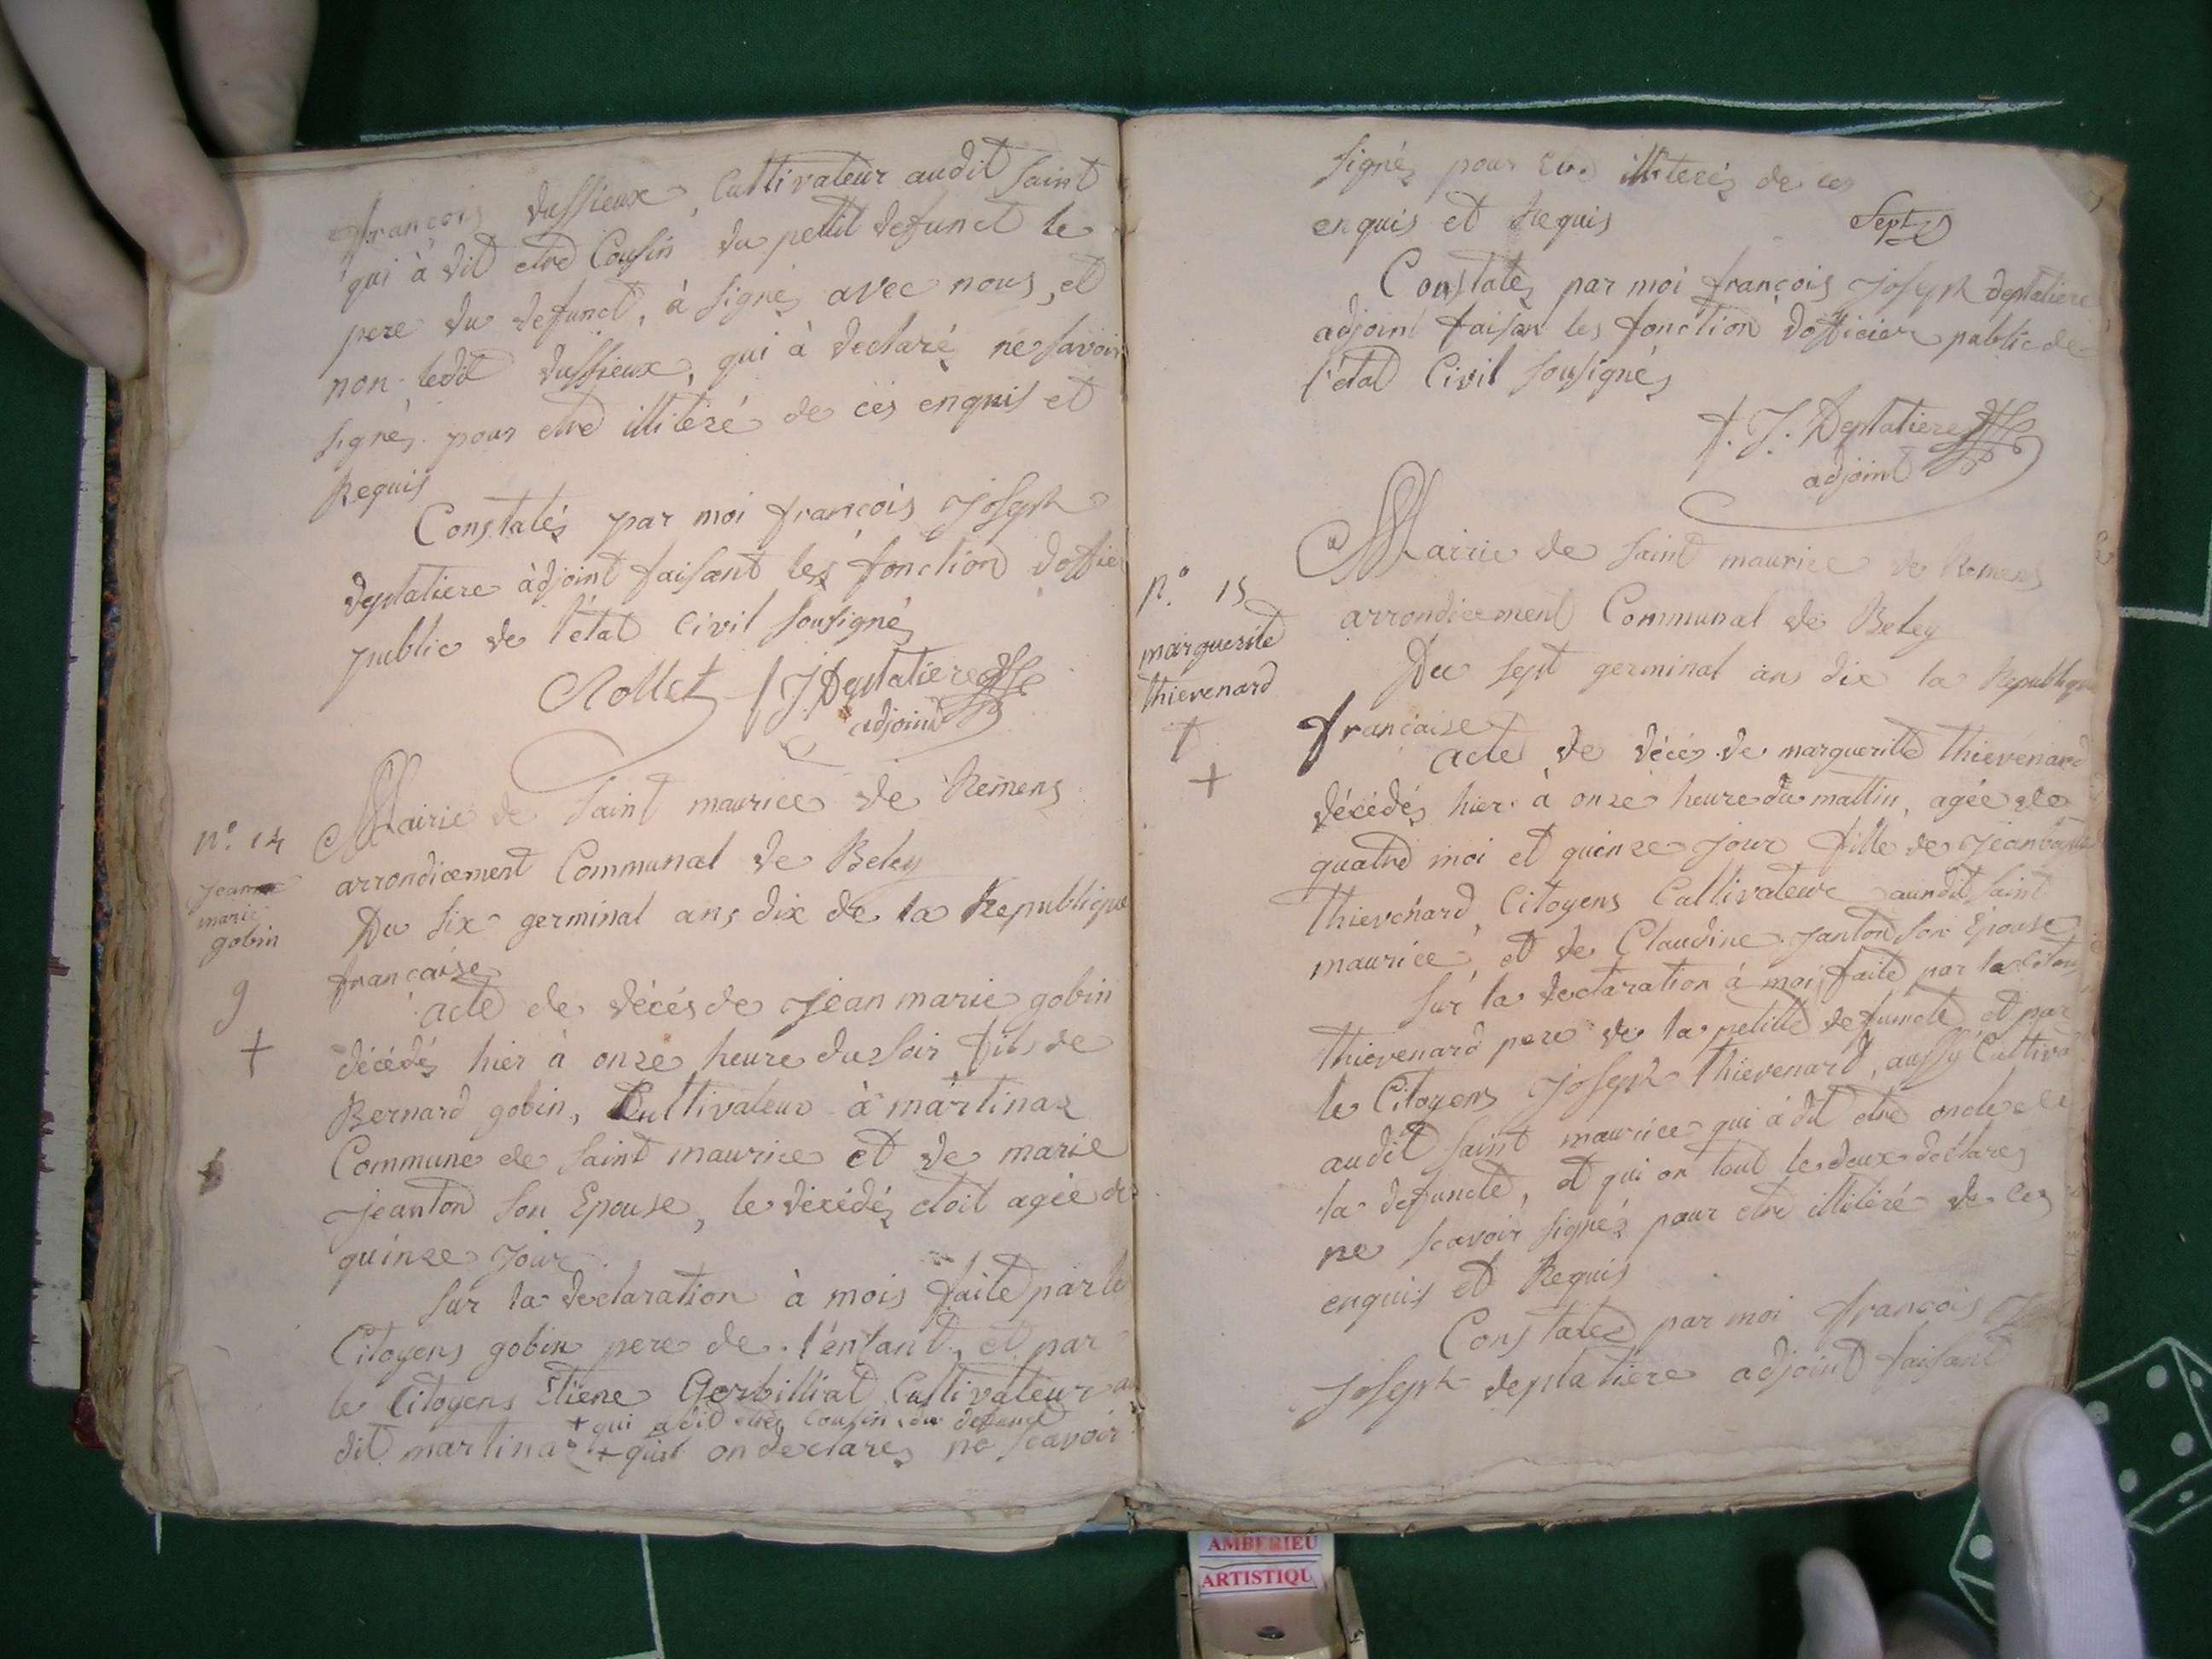 françois dussieux, Cultivateur audit saint
qui à dit etre Cousin du petit defunct le
pere du defunct, à signés avec nous, et
non ledit dussieux, qui à declaré ne savoir
signés pour etre illiteré de ces enquis et
Requis
Constatés par moi françois Joseph
deplatiere adjoint faisant les fonction doffici
public de l'état Civil sousigné
Rollet f J. Deplatiere
adjoint
n.° 14
jeanne
marie
gobin
9
Mairie de Saint maurice de Remens
arrondicement Communal de Beley
Du six germinal ans dix de la Republique
française
acte de décés de Jean marie gobin
décédés hier à onze heure du soir fils de
Bernard gobin, Cultivateur à martinaz
Commune de saint maurice et de marie
Jeanton son Epouse, le décédés etoit agée de
quinze jour
sur la declaration à mois faite par le
Citoyens gobin pere de l'enfant, et par
le Citoyens Etiene Gerbilliat Cultivateur au
+ qui a dit etre cousin du defunct
dit martinaz + qui on declares ne scavoir
signés pour etre illiterés de ces
enquis et Requis Sept
Constatés par moi françois Joseph deplatiere
adjoint faisan les fonction dofficier public de
l'état Civil sousignés
f. J. Deplatiere
adjoint
n.° 15
marguerite
thievenard
Mairie de saint maurice de Remens
arrondicement Communal de Beley
Du sept germinal ans dix la Republique
française
acte de décés de margueritte thievenard
décédés hier à onze heure du mattin, agée de
quatre moi et quinze jour fille de Jean
thievenard Citoyens Cultivateur audit saint
maurice, et de Claudine Janton son Epouse
sur la declaration à moi faite par le Citoy
thievenard pere de la petitte defuncte et par
le Citoyens Joseph thievenard, aussy Cultiva
audit saint maurice qui à dit etre oncle de
la defuncte, et qui on tout le deux declares
ne scavoir signés pour etre illiteré de ces
enquis et Requis
Constates par moi françois
Joseph deplatiere adjoint faisant
AMBERIEU
ARTISTIQU